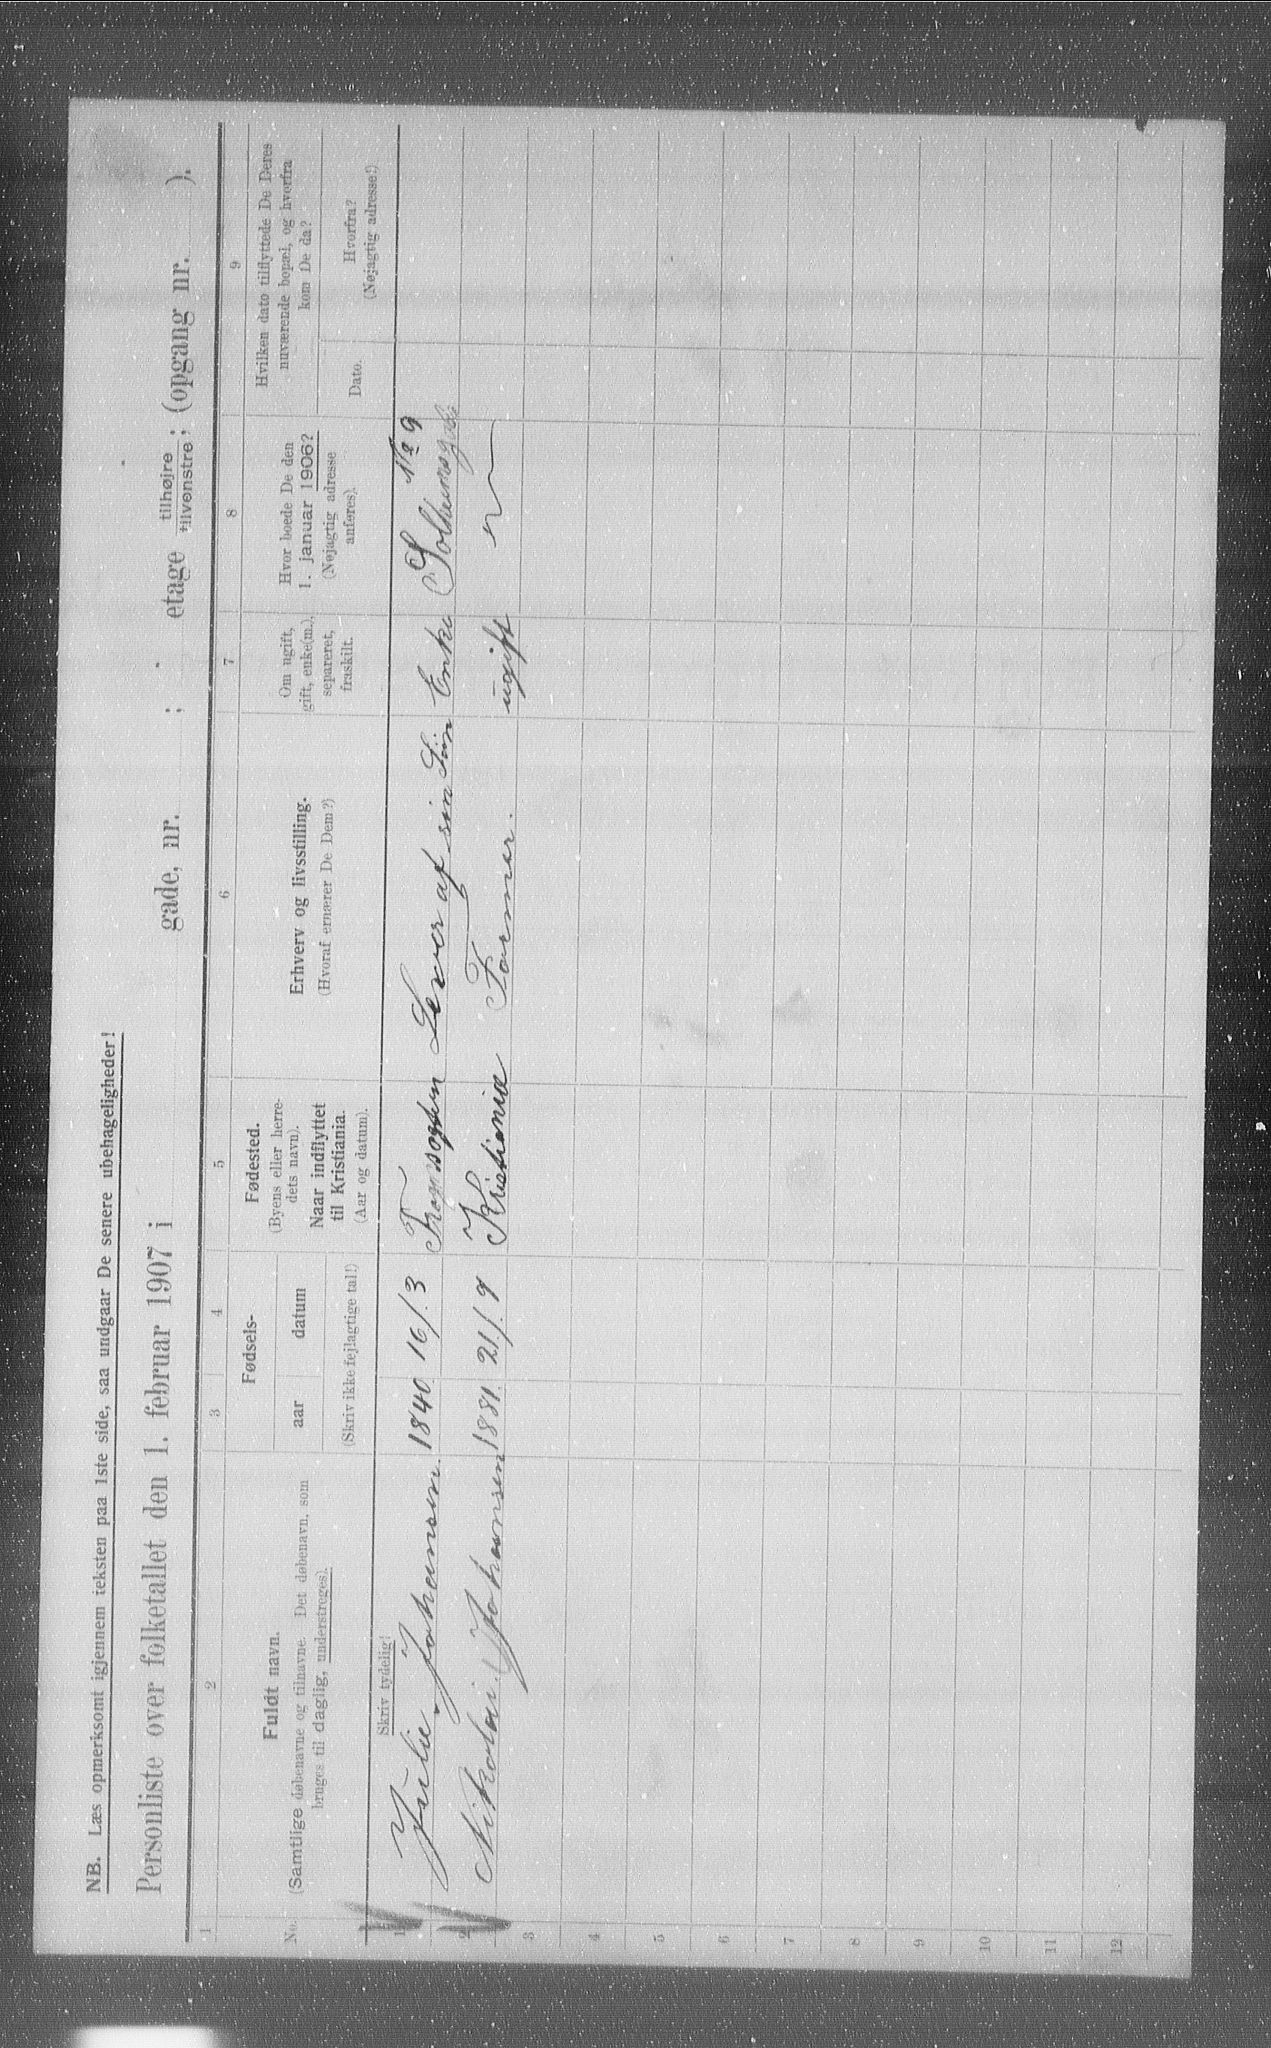 NB. Læs opmerksomt igjennem teksten paa 1ste side, saa undgaar De senere ubehageligheder!
Personliste over folketallet den 1. februar 1907 i gade, nr. ; etage tilhøjre tilvenstre; (opgang nr. ).
1 2 3 4 5 6 7 8 9
No.
Fuldt navn.
(Samtlige døbenavne og tilnavne. Det døbenavn, som
bruges til daglig, understreges).
Skriv tydelig!
Fødsels-
aar datum
(Skriv ikke fejlagtige tal!)
Fødested.
(Byens eller herre-
dets navn).
Naar indflyttet
til Kristiania.
(Aar og datum).
Erhverv og livsstilling.
(Hvoraf ernærer De Dem?)
Om ugift,
gift, enke(m.),
separeret,
fraskilt.
Hvor boede De den
1. januar 1906?
(Nøjagtig adresse
anføres).
Hvilken dato tilflyttede De Deres
nuværende bopæl, og hvorfra
kom De da?
Dato.
Hvorfra?
(Nøjagtig adresse!)
1 Julie Johansen. 1840 16/3 Lever af sin Søn Enke No 9
2 Nikolai Johansen 1881. 21/9 Kristiania Former. ugift
3
4
5
6
7
8
9
10
11
12